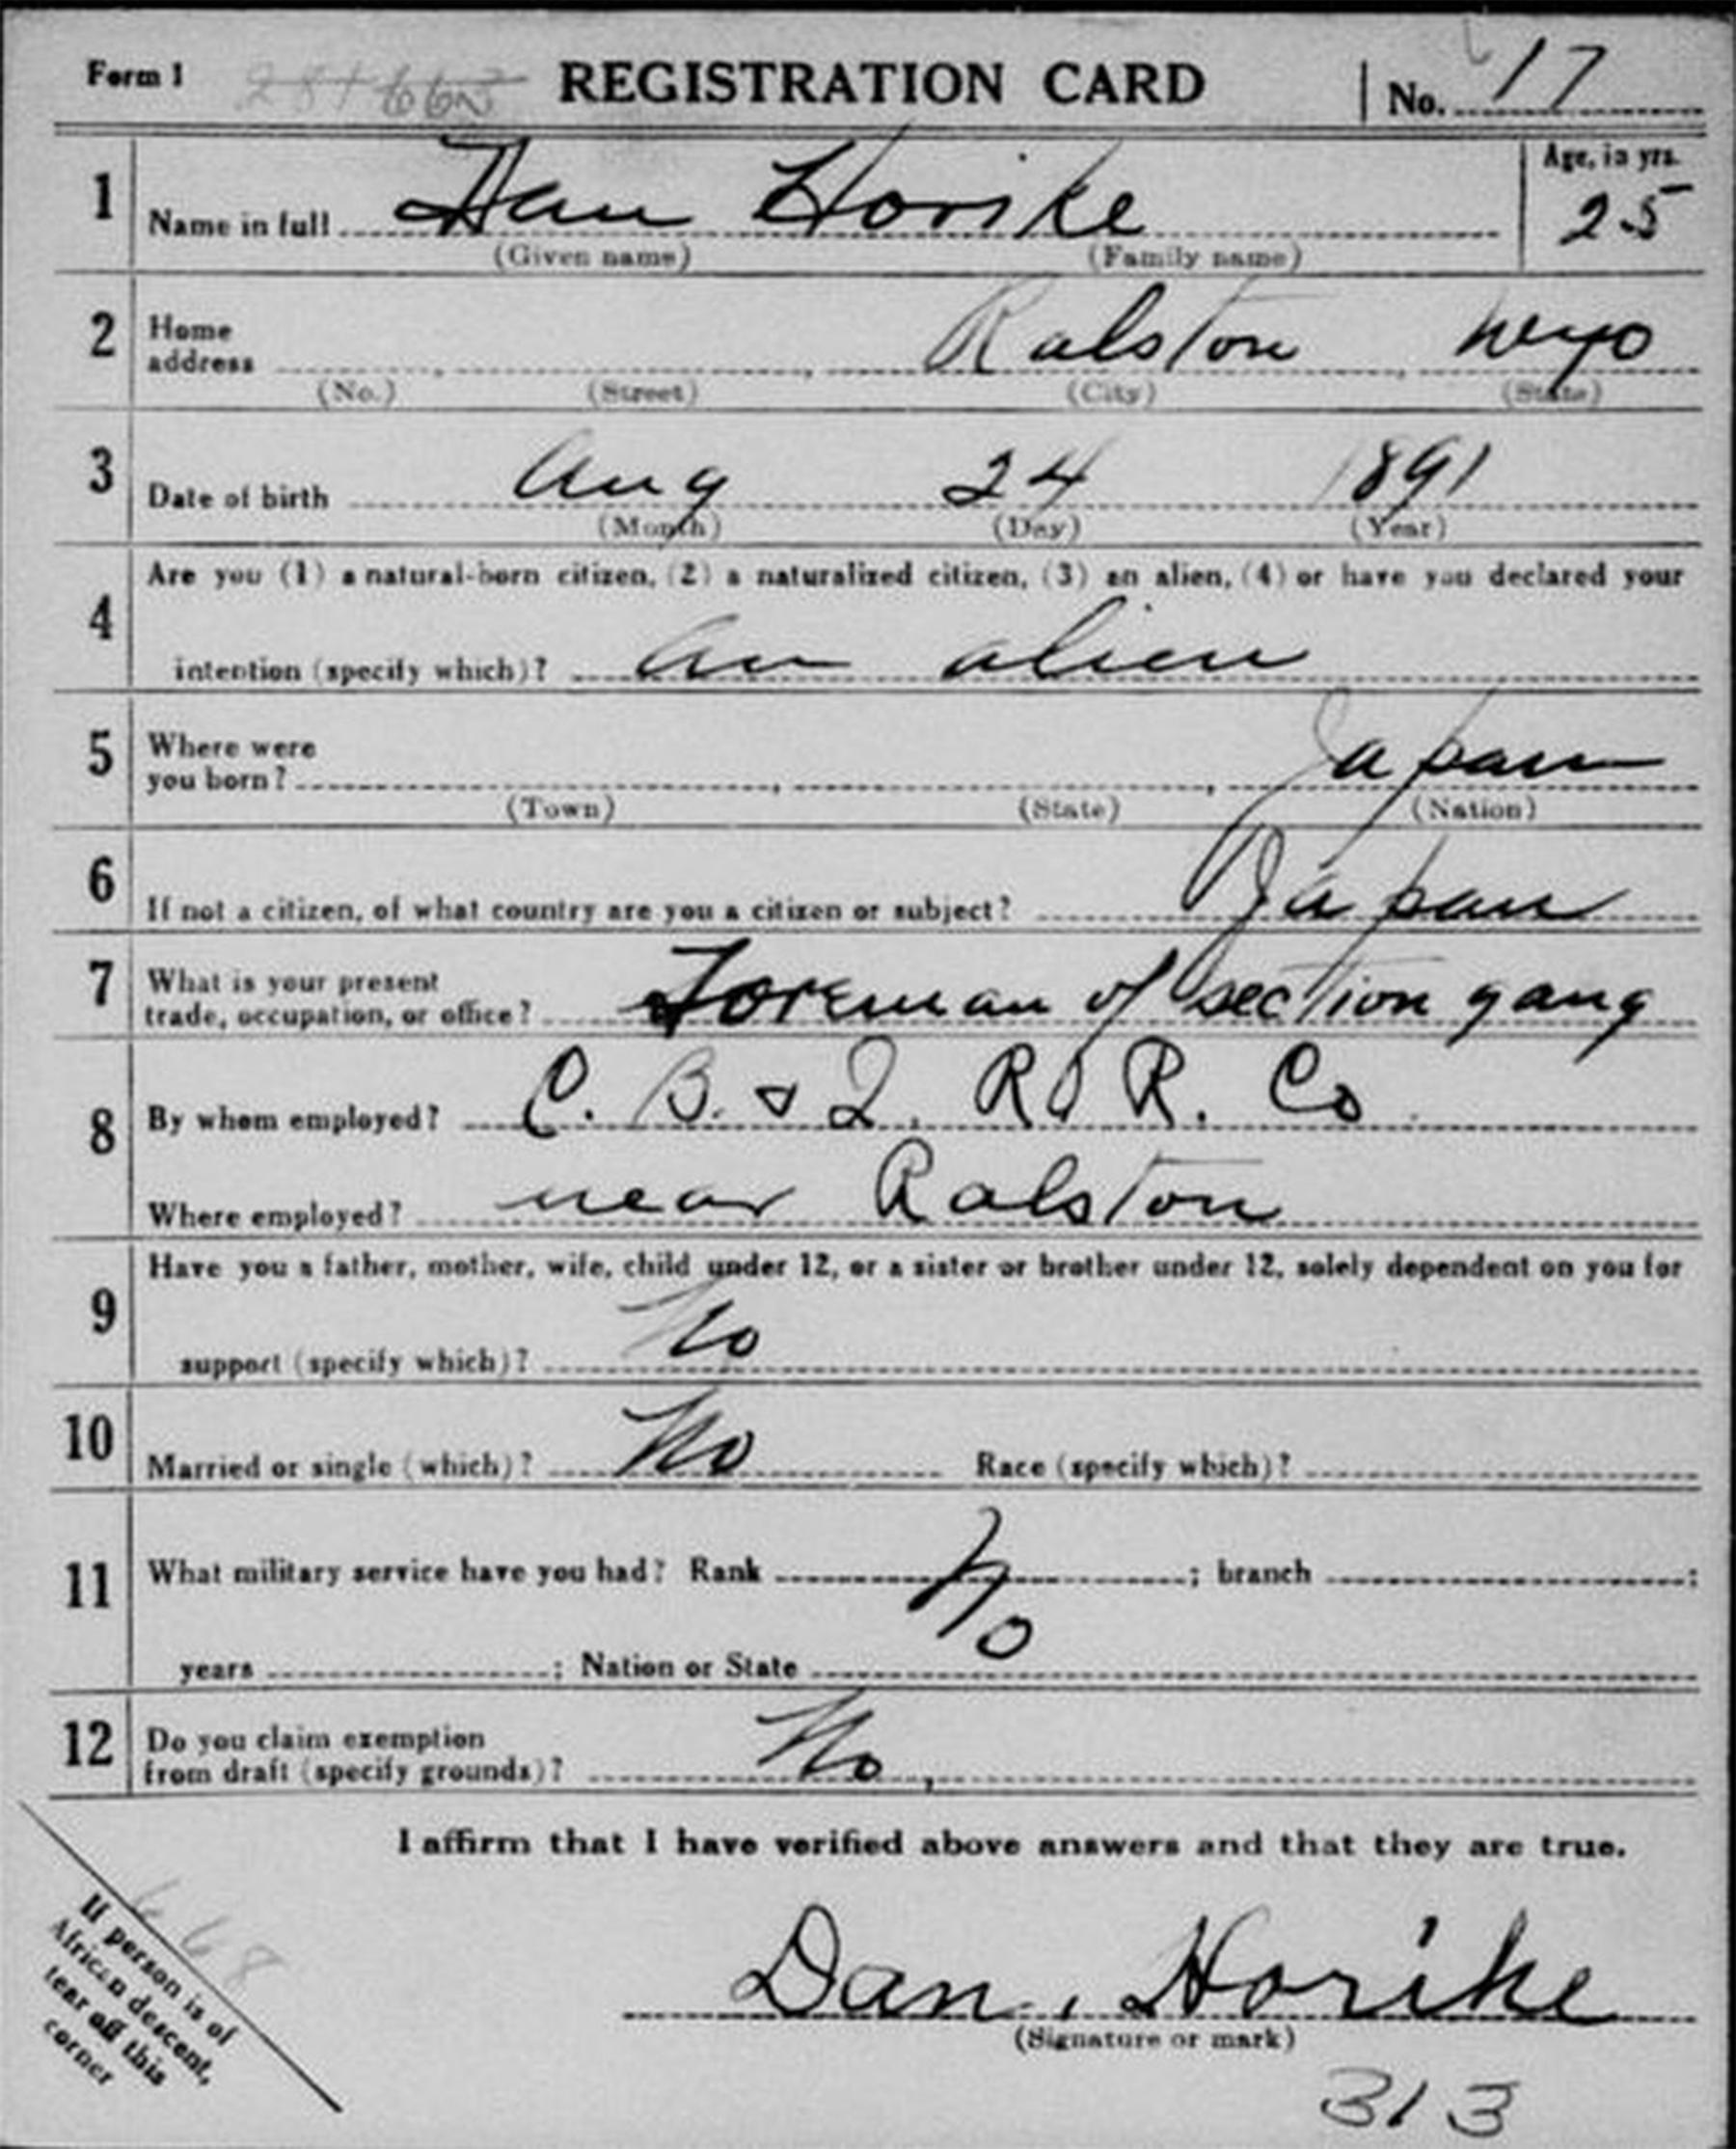 Form 1 REGISTRATION CARD No. 17
1 Name in full Dan Horike Age, in yrs. 25
(Given name) (Family name)
2 Home address Ralston Wyo
(No.) (Street) (City) (State)
3 Date of birth Aug 24 1891
(Month) (Day) (Year)
4 Are you (1) a natural-born citizen, (2) a naturalized citizen, (3) an alien, (4) or have you declared your
intention (specify which)? An alien
5 Where were you born? Japan
(Town) (State) (Nation)
6 If not a citizen, of what country are you a citizen or subject? Japan
7 What is your present trade, occupation, or office? Foreman of section gang
8 By whom employed? C. B. & Q. R R. Co
Where employed? near Ralston
9 Have you a father, mother, wife, child under 12, or a sister or brother under 12, solely dependent on you for
support (specify which)? No
10 Married or single (which)? No Race (specify which)?
11 What military service have you had? Rank No ; branch ;
years ; Nation or State
12 Do you claim exemption from draft (specify grounds)? No
I affirm that I have verified above answers and that they are true.
Dan, Horike
(Signature or mark)
If person is of
African descent,
tear off this
corner
313